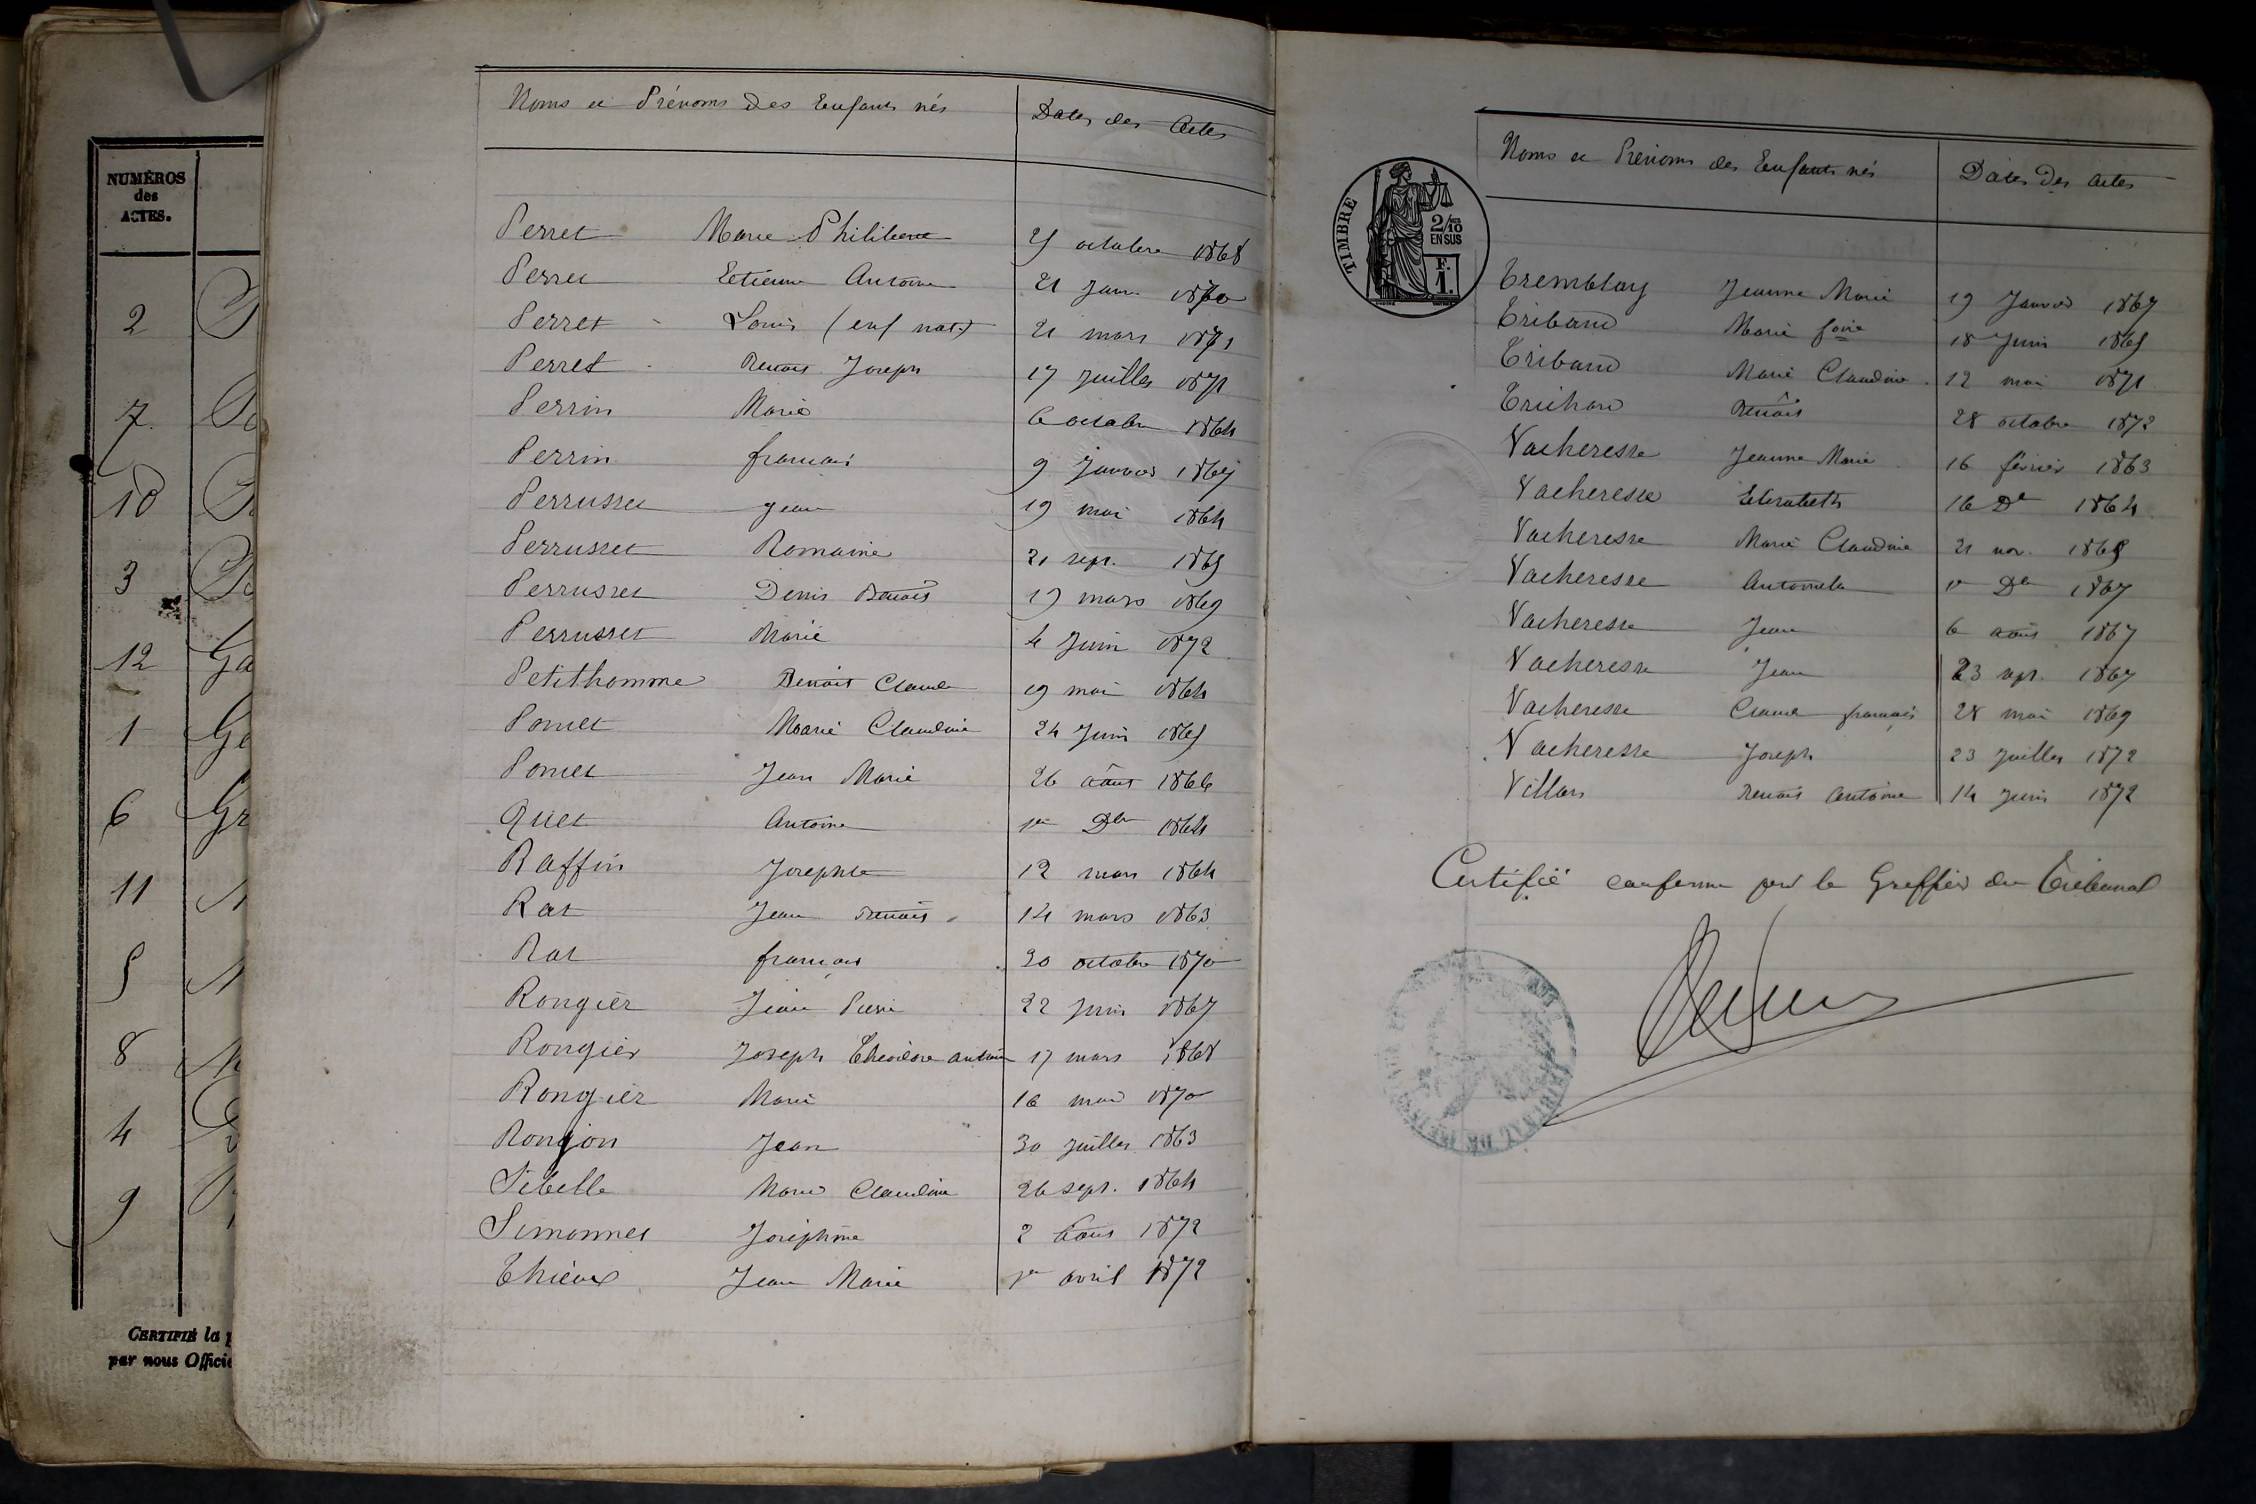 NUMÉROS
des
ACTES.
2
7
10
3
12 Ga
1 Ge
6 Gr
11
5
8
4
9
CERTIFIÉ la
par nous Offici
Noms et Prénoms des Enfants nés Dates des Actes
Perret Marie Philiberte octobre 1868
Perret Etienne Antoine 21 Janv. 1870
Perret Louis (enf nat.) 21 mars 1871
Perret Benoit Joseph 17 Juillet 1871
Perrin Marie 6 octobre 1864
Perrin francois 9 Janvier 1867
Perrusset Jean 19 mai 1864
Perrusset Romaine 21 sept. 1865
Perrusset Denis Benoit 17 mars 1869
Perrusset Marie 4 Juin 1872
Petithomme Benoit Claude 19 mai 1864
Pomet Marie Claudine 24 Juin 1865
Pomet Jean Marie 26 août 1866
Quet Antoine 1er Dbre 1864
Raffin Josephte 12 mars 1864
Rat Jean Benoit 14 mars 1863
Rat francois 30 octobre 1870
Rongier Jean Pierre 22 Juin 1867
Rongier Joseph Théodore antoine 17 mars 1868
Rongier Marie 16 mai 1870
Ronjon Jean 30 Juillet 1863
Sibelle Marie Claudine 26 sept. 1864
Simonnet Joséphine 2 Aout 1872
Jean Marie 1er avril 1872
TIMBRE
2/10
EN SUS
F.
1.
Noms et Prénoms des Enfants nés Dates des Actes
Tremblay Jeanne Marie 19 Janvier 1867
Triband Marie 18 Juin 1865
Triband Marie Claudine 12 mai 1871
Benoit 28 octobre 1872
Vacheresse Jeanne Marie 16 février 1863
Vacheresse Elisabeth 16 Dbre 1864
Vacheresse Marie Claudine 21 nov. 1865
Vacheresse Antoinette 1er Dbre 1867
Vacheresse Jean 6 août 1867
Vacheresse Jean 23 sept. 1867
Vacheresse Claude françois 28 mai 1869
Vacheresse Joseph 23 Juillet 1872
Villars Benoit Antoine 14 Juin 1872
Certifié conforme par le Greffier du Tribunal
TRIBUNAL DE